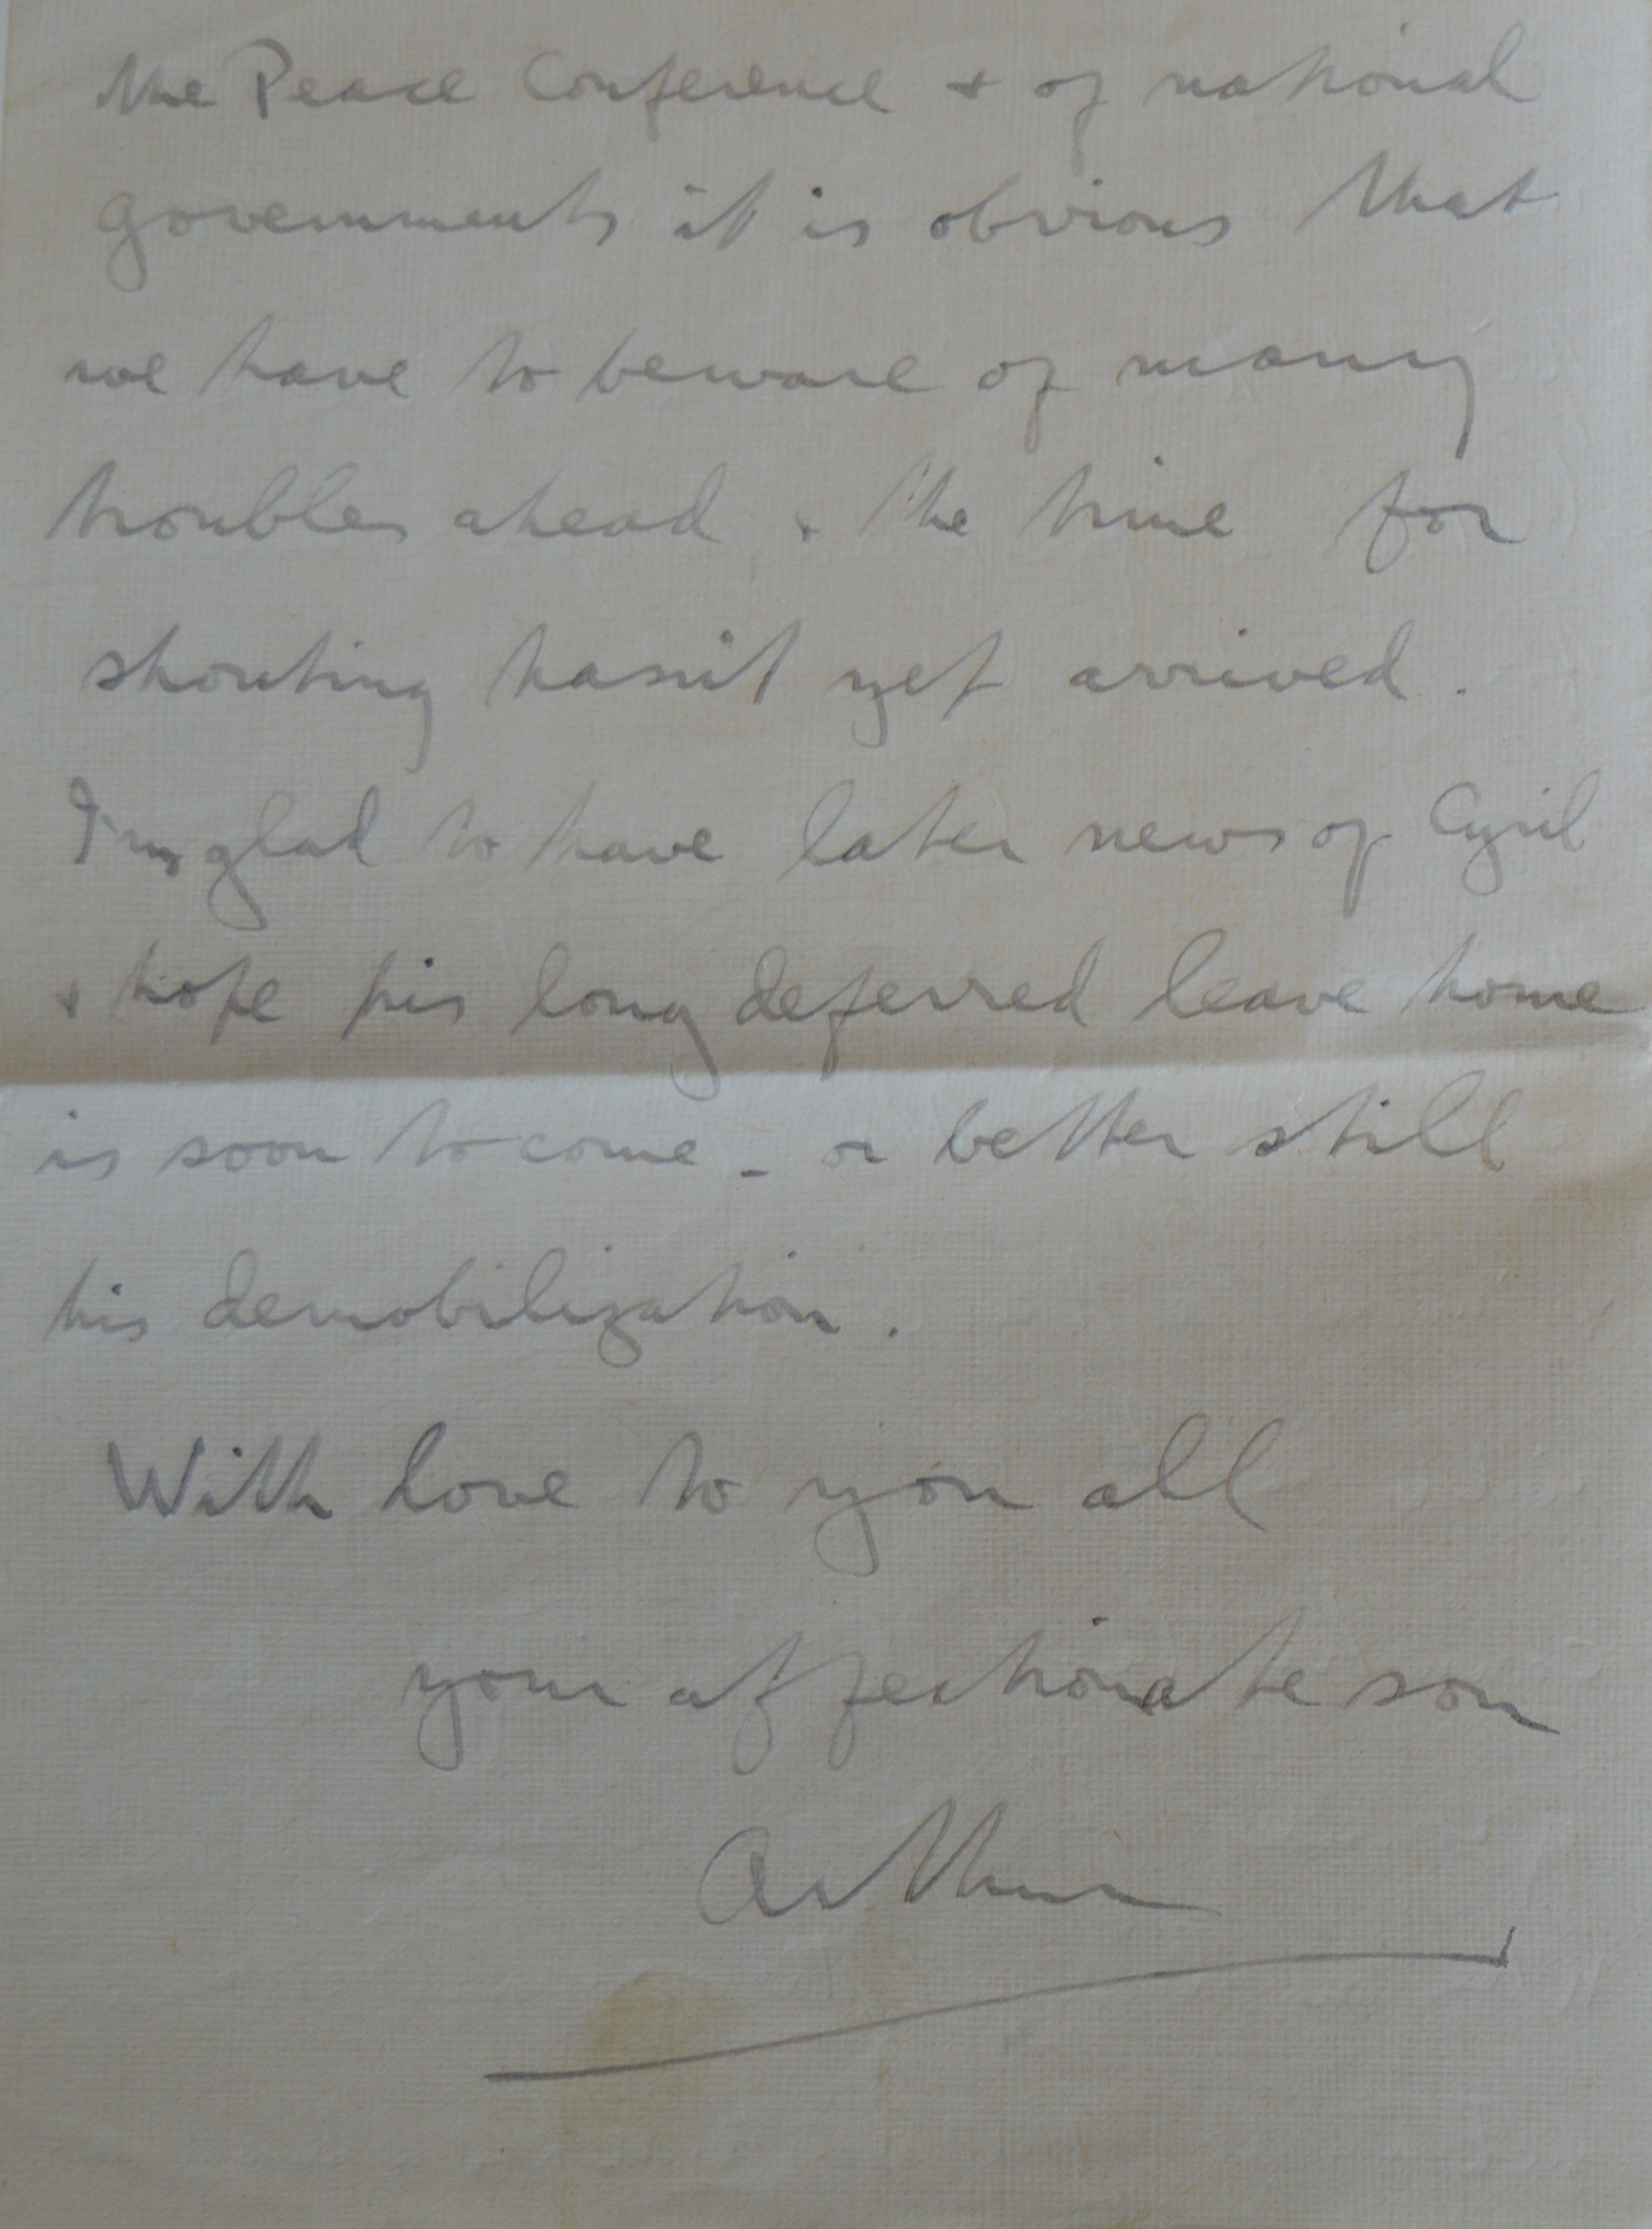 the Peace Conference & of national
governments it is obvious that
we have to beware of many
troubles ahead & the time for
shouting hasn't yet arrived.
I'm glad to have later news of Cyril
& hope his long deferred leave home
is soon to come - or better still
his demobilization.
With love to you all
your affectionate son
Arthur